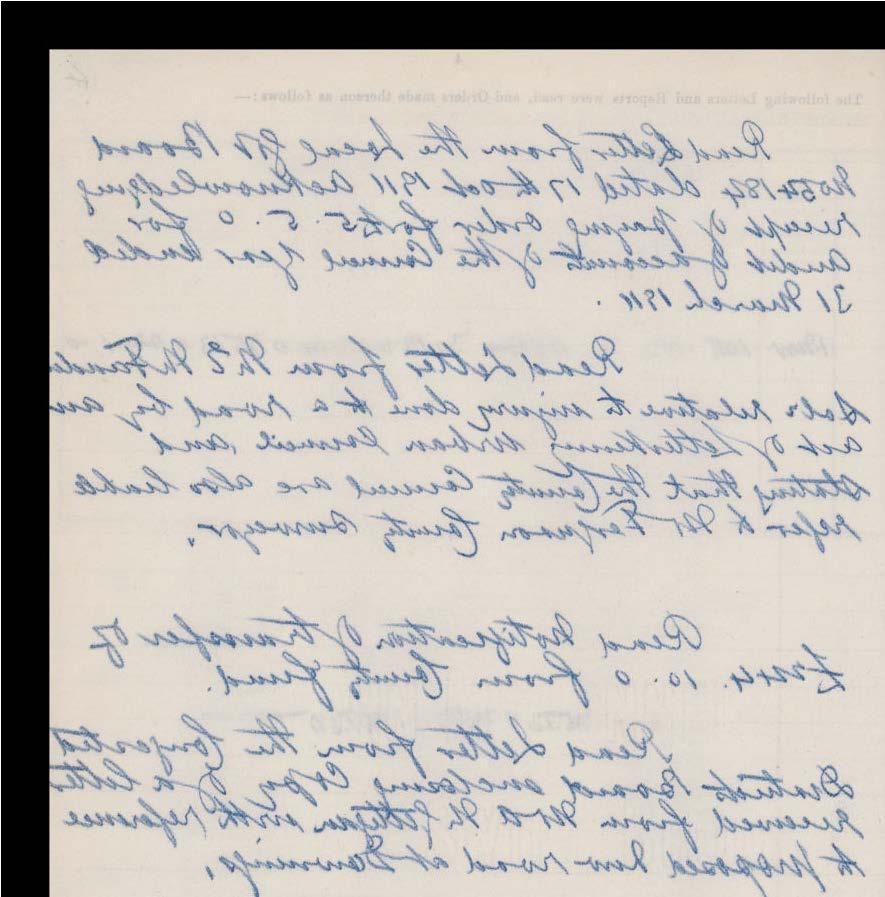 The following Letters and Reports were read, and Orders made thereon as follows:—
Read Letter from the Local Gov Board
No 54184 dated 17th Oct 1911 acknowledging
receipt of paying order for £5. 5. 0 for
audit of accounts of the Council year ended
31 March 1911.
Read Letter from Mr E
Solr relative to injury done to a road by an
act of Letterkenny Urban Council and
stating that the County Council are also liable
refer to Mr Ferguson County Surveyor.
Read Notification of transfer of
10. 0 from County fund.
Read Letter from the Congested
Districts Board enclosing Copy of a letter
received from Mr H with reference
to proposed New road at